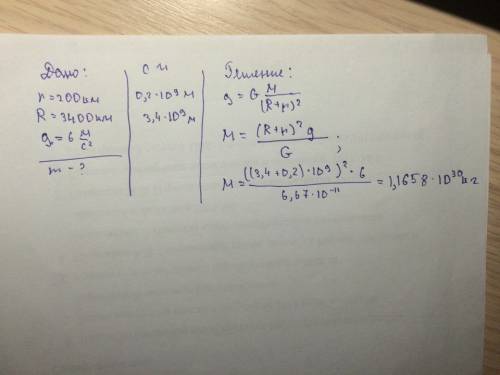 Дано:
r=200км
R=3400км
g=6 м/с²
m-?
СИ
0,2·10⁹м
3,4·10⁹м
Решение:
g=G M/(R+r)²
M=(R+r)²g/G;
M=((3,4+0,2)·10⁹)²·6/6,67·10⁻¹¹=1,1658·10³⁰кг